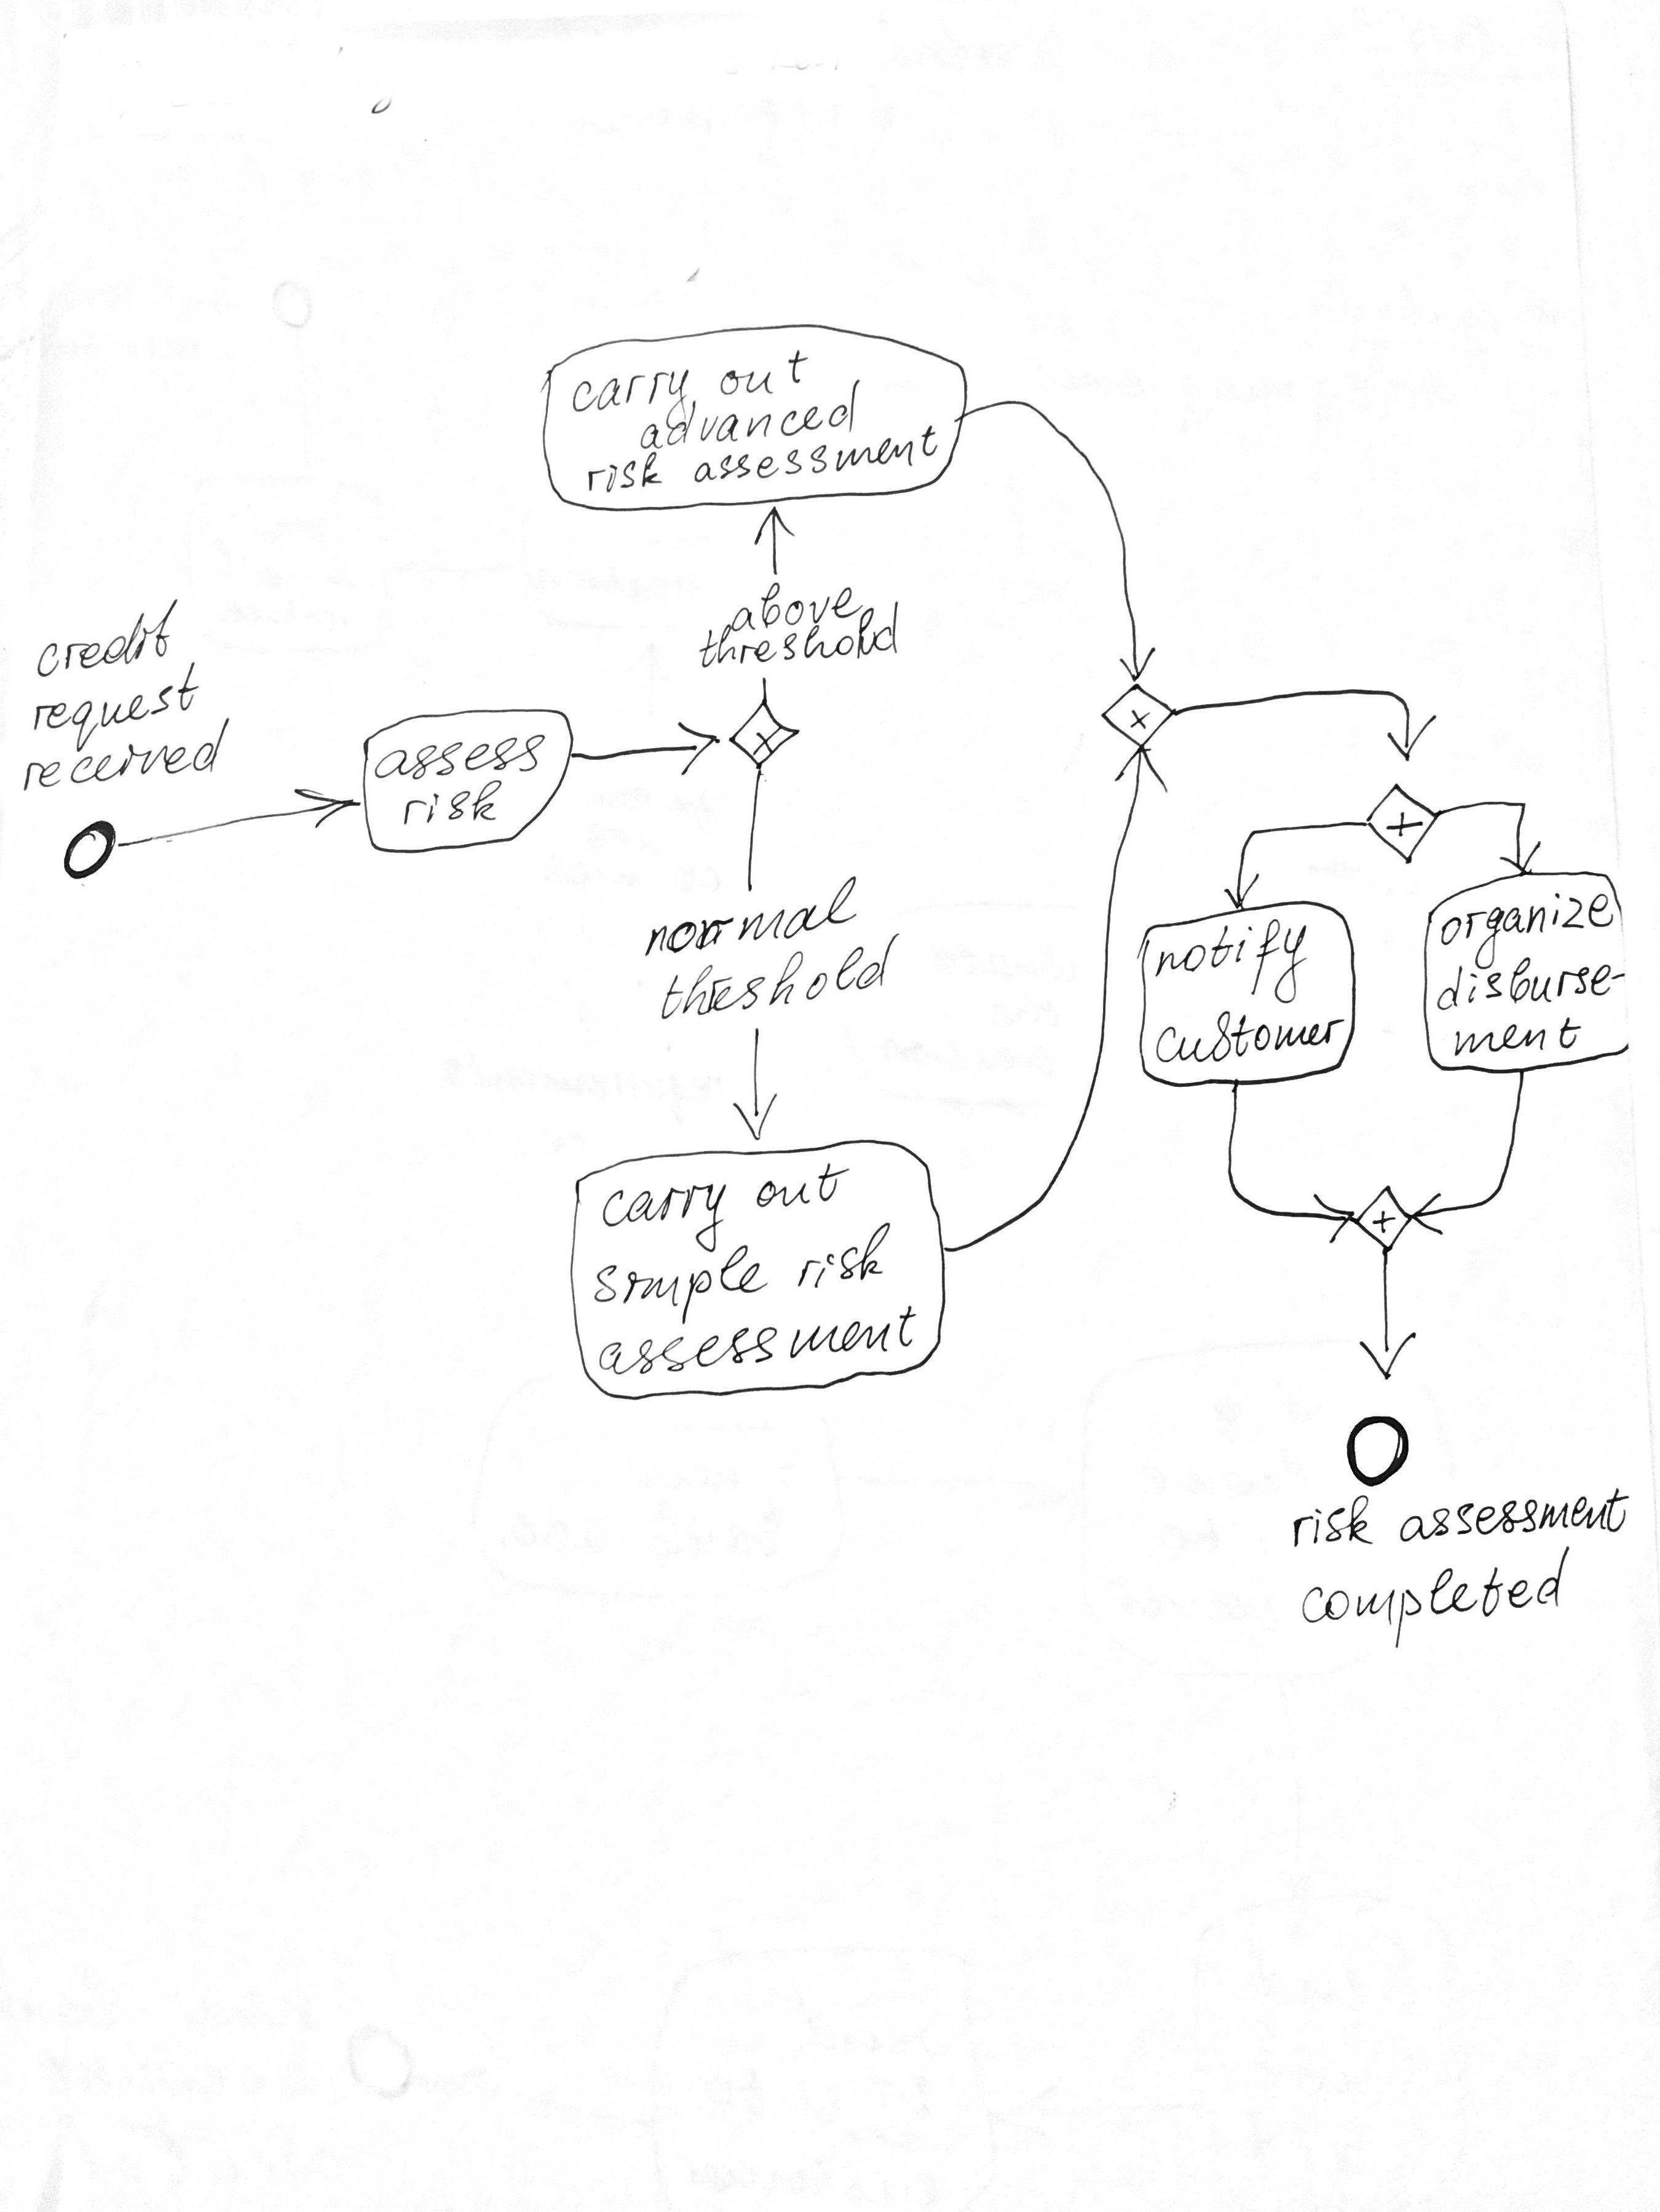 credit
request
received
assess
risk
carry out
advanced
risk assessment
above
threshold
normal
threshold
carry out
simple risk
assessment
notify
customer
organize
disburse-
ment
risk assessment
completed